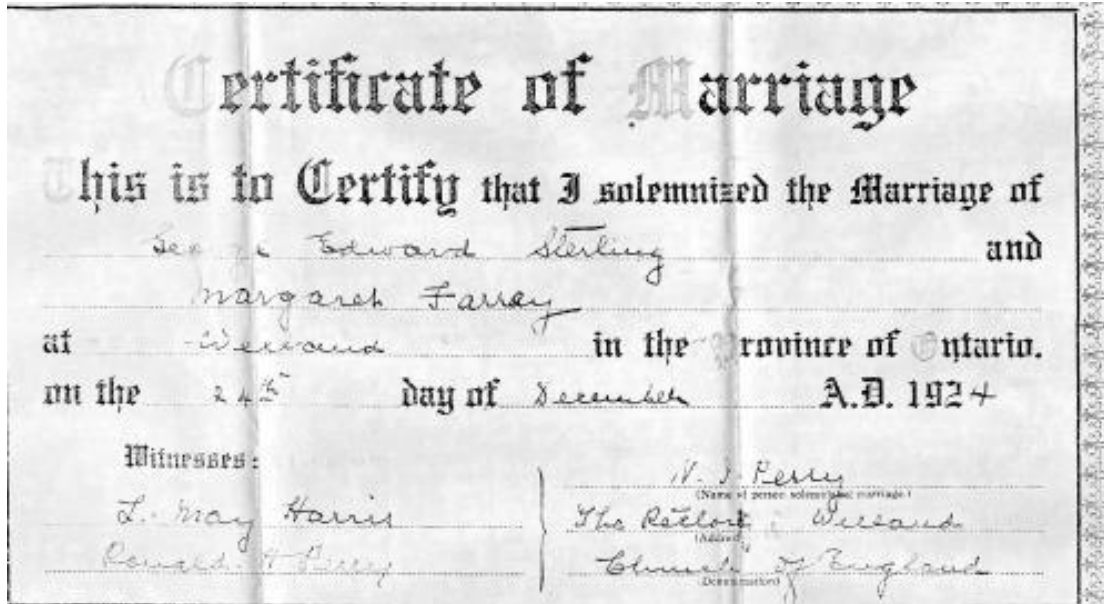 Certificate of Marriage
This is to Certify that I solemnized the Marriage of
George Edward Sterling and
Margaret Farray
at Welland in the Province of Ontario.
on the 24th day of December A.D. 1924
Witnesses:
L. May Harris
Ronald Perry
Perry
(Name of person solemnizing marriage.)
The Rectory Welland
(Address)
Church of England
(Denomination)